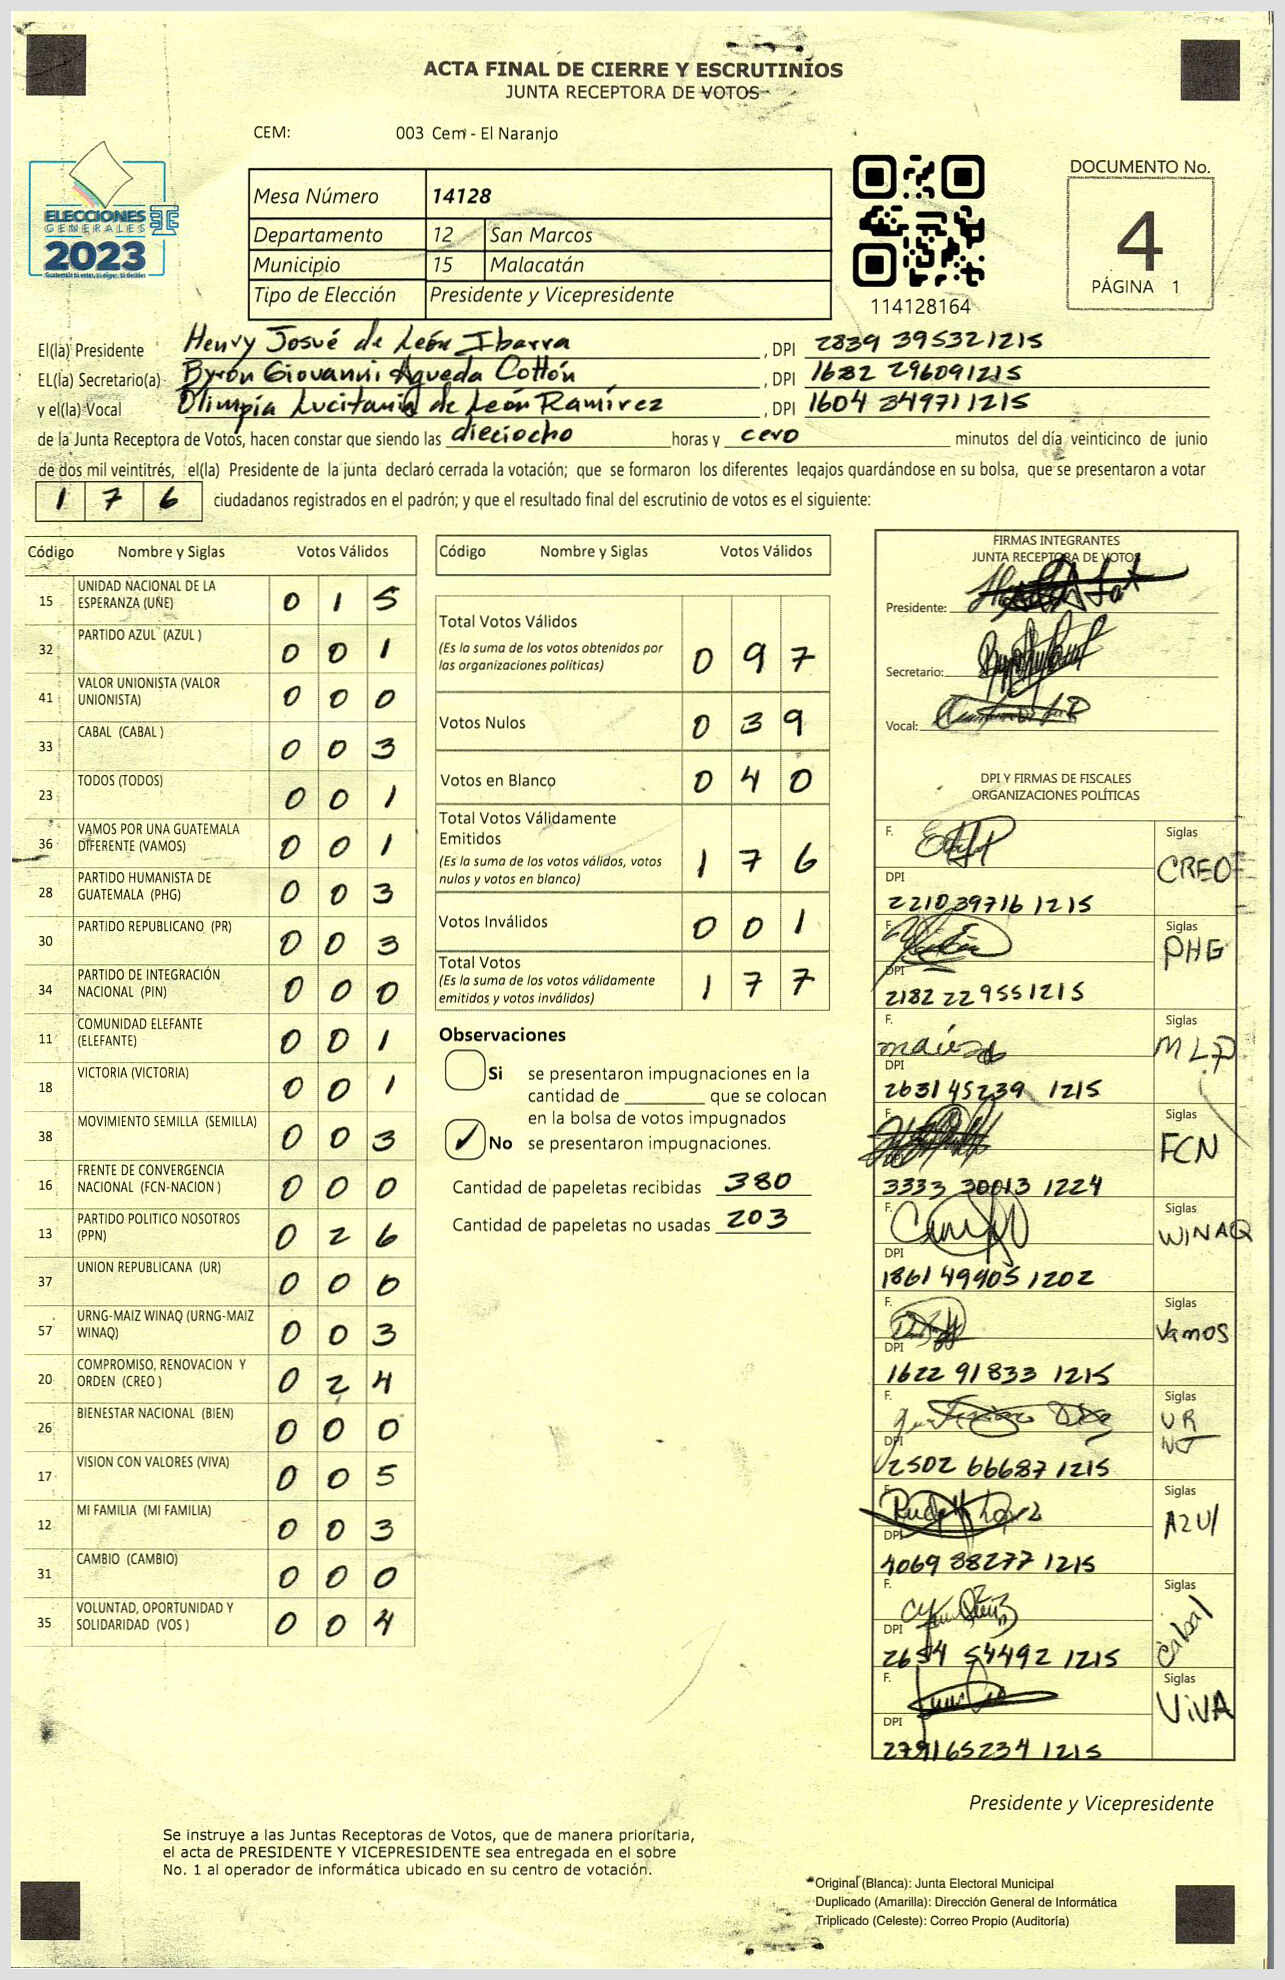 ACTA FINAL DE CIERRE Y ESCRUTINIOS
JUNTA RECEPTORA DE VOTOS
CEM: 003 Cem - El Naranjo
ELECCIONES
GENERALES
2023
Mesa Número 14128
Departamento 12 San Marcos
Municipio 15 Malacatán
Tipo de Elección Presidente y Vicepresidente
114128164
DOCUMENTO No.
4
PÁGINA 1
El(la) Presidente Henry Josué de León Ibarra, DPI 2839 395321215
EL(la) Secretario(a) Byron Giovanni Agueda Cottón, DPI 1682 296091215
y el(la) Vocal Olimpia Lucitania de León Ramírez, DPI 1604 349711215
de la Junta Receptora de Votos, hacen constar que siendo las dieciocho horas y cero minutos del día veinticinco de junio
de dos mil veintitrés, el(la) Presidente de la junta declaró cerrada la votación; que se formaron los diferentes legajos quardándose en su bolsa, que se presentaron a votar
1 7 6 ciudadanos registrados en el padrón; y que el resultado final del escrutinio de votos es el siguiente:
Código Nombre y Siglas Votos Válidos
15 UNIDAD NACIONAL DE LA ESPERANZA (UNE) 0 1 5
32 PARTIDO AZUL (AZUL ) 0 0 1
41 VALOR UNIONISTA (VALOR UNIONISTA) 0 0 0
33 CABAL (CABAL ) 0 0 3
23 TODOS (TODOS) 0 0 1
36 VAMOS POR UNA GUATEMALA DIFERENTE (VAMOS) 0 0 1
28 PARTIDO HUMANISTA DE GUATEMALA (PHG) 0 0 3
30 PARTIDO REPUBLICANO (PR) 0 0 3
34 PARTIDO DE INTEGRACIÓN NACIONAL (PIN) 0 0 0
11 COMUNIDAD ELEFANTE (ELEFANTE) 0 0 1
18 VICTORIA (VICTORIA) 0 0 1
38 MOVIMIENTO SEMILLA (SEMILLA) 0 0 3
16 FRENTE DE CONVERGENCIA NACIONAL (FCN-NACION ) 0 0 0
13 PARTIDO POLITICO NOSOTROS (PPN) 0 2 6
37 UNION REPUBLICANA (UR) 0 0 0
57 URNG-MAIZ WINAQ (URNG-MAIZ WINAQ) 0 0 3
20 COMPROMISO, RENOVACION Y ORDEN (CREO ) 0 2 4
26 BIENESTAR NACIONAL (BIEN) 0 0 0
17 VISION CON VALORES (VIVA) 0 0 5
12 MI FAMILIA (MI FAMILIA) 0 0 3
31 CAMBIO (CAMBIO) 0 0 0
35 VOLUNTAD, OPORTUNIDAD Y SOLIDARIDAD (VOS ) 0 0 4
Código Nombre y Siglas Votos Válidos
Total Votos Válidos
(Es la suma de los votos obtenidos por
las organizaciones politicas) 0 9 7
Votos Nulos 0 3 9
Votos en Blanco 0 4 0
Total Votos Válidamente
Emitidos
(Es la suma de los votos válidos, votos
nulos y votos en blanco) 1 7 6
Votos Inválidos 0 0 1
Total Votos
(Es la suma de los votos válidamente
emitidos y votos inválidos) 1 7 7
Observaciones
Si se presentaron impugnaciones en la
cantidad de ________ que se colocan
en la bolsa de votos impugnados
✓ No se presentaron impugnaciones.
Cantidad de papeletas recibidas 380
Cantidad de papeletas no usadas 203
FIRMAS INTEGRANTES
JUNTA RECEPTORA DE VOTOS
Presidente:
Secretario:
Vocal:
DPI Y FIRMAS DE FISCALES
ORGANIZACIONES POLÍTICAS
F. Siglas CREO
DPI 2210 39716 1215
F. Siglas PHG
DPI 2182 22955 1215
F. Siglas MLP
DPI 2631 45239 1215
F. Siglas FCN
3333 30013 1224
F. Siglas WINAQ
DPI 1861 49905 1202
F. Siglas Vamos
DPI 1622 91833 1215
F. Siglas UR
DPI 2502 66687 1215
F. Siglas AZUl
DPI 4069 88277 1215
F. Siglas Cabal
DPI 2654 54492 1215
F. Siglas ViVA
DPI 2791 65234 1215
Presidente y Vicepresidente
Se instruye a las Juntas Receptoras de Votos, que de manera prioritaria,
el acta de PRESIDENTE Y VICEPRESIDENTE sea entregada en el sobre
No. 1 al operador de informática ubicado en su centro de votación.
Original (Blanca): Junta Electoral Municipal
Duplicado (Amarilla): Dirección General de Informática
Triplicado (Celeste): Correo Propio (Auditoría)